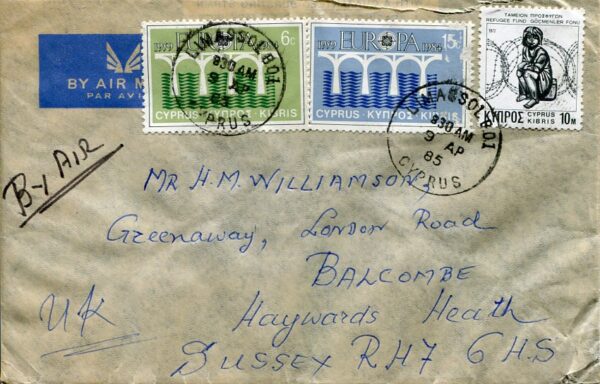 BY AIR M
PAR AVI
By Air
1959 EUROPA 1984 6c
CYPRUS · ΚΥΠΡΟΣ · KIBRIS
1959 EUROPA 1984 15c
CYPRUS · ΚΥΠΡΟΣ · KIBRIS
ΤΑΜΕΙΟΝ ΠΡΟΣΦΥΓΩΝ
REFUGEE FUND GÖÇMENLER FONU
ΚΥΠΡΟΣ CYPRUS KIBRIS 10M
LIMASSOL
830 AM
9 AP
85
CYPRUS
LIMASSOL
830 AM
9 AP
85
CYPRUS
MR H.M. WILLIAMSON,
Greenaway, London Road
BALCOMBE
Haywards Heath
SUSSEX RH7 6HS
UK